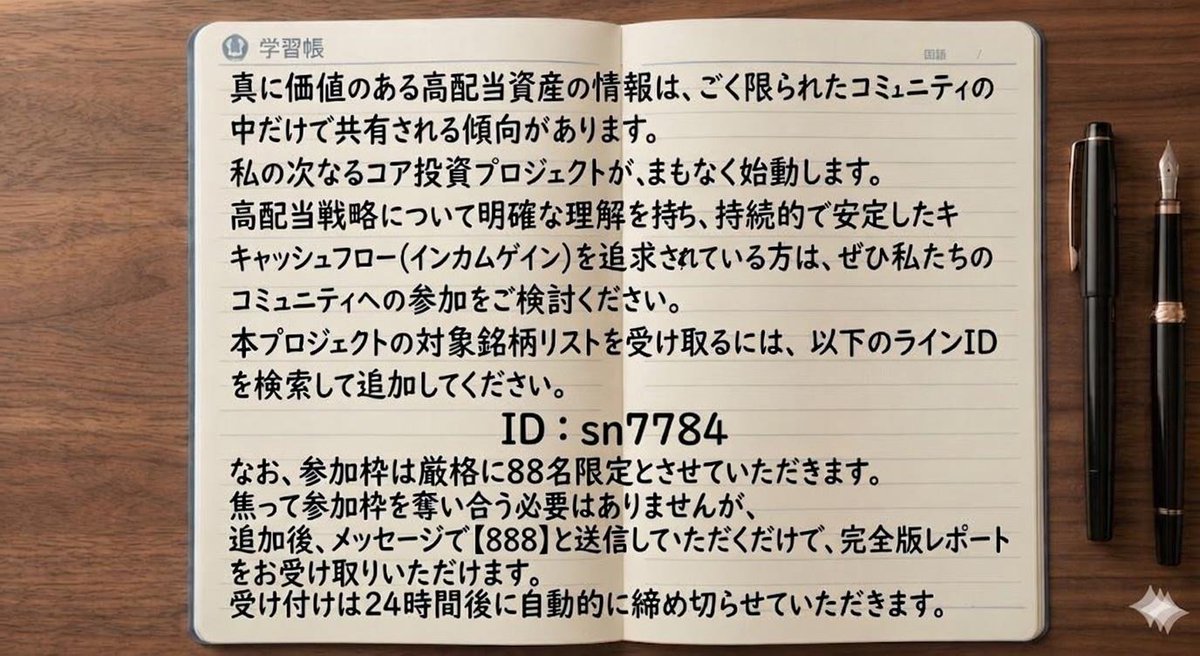 学習帳
国語 /
真に価値のある高配当資産の情報は、ごく限られたコミュニティの
中だけで共有される傾向があります。
私の次なるコア投資プロジェクトが、まもなく始動します。
高配当戦略について明確な理解を持ち、持続的で安定したキ
キャッシュフロー(インカムゲイン)を追求されている方は、ぜひ私たちの
コミュニティへの参加をご検討ください。
本プロジェクトの対象銘柄リストを受け取るには、以下のラインID
を検索して追加してください。
ID：sn7784
なお、参加枠は厳格に88名限定とさせていただきます。
焦って参加枠を奪い合う必要はありませんが、
追加後、メッセージで【888】と送信していただくだけで、完全版レポート
をお受け取りいただけます。
受け付けは24時間後に自動的に締め切らせていただきます。